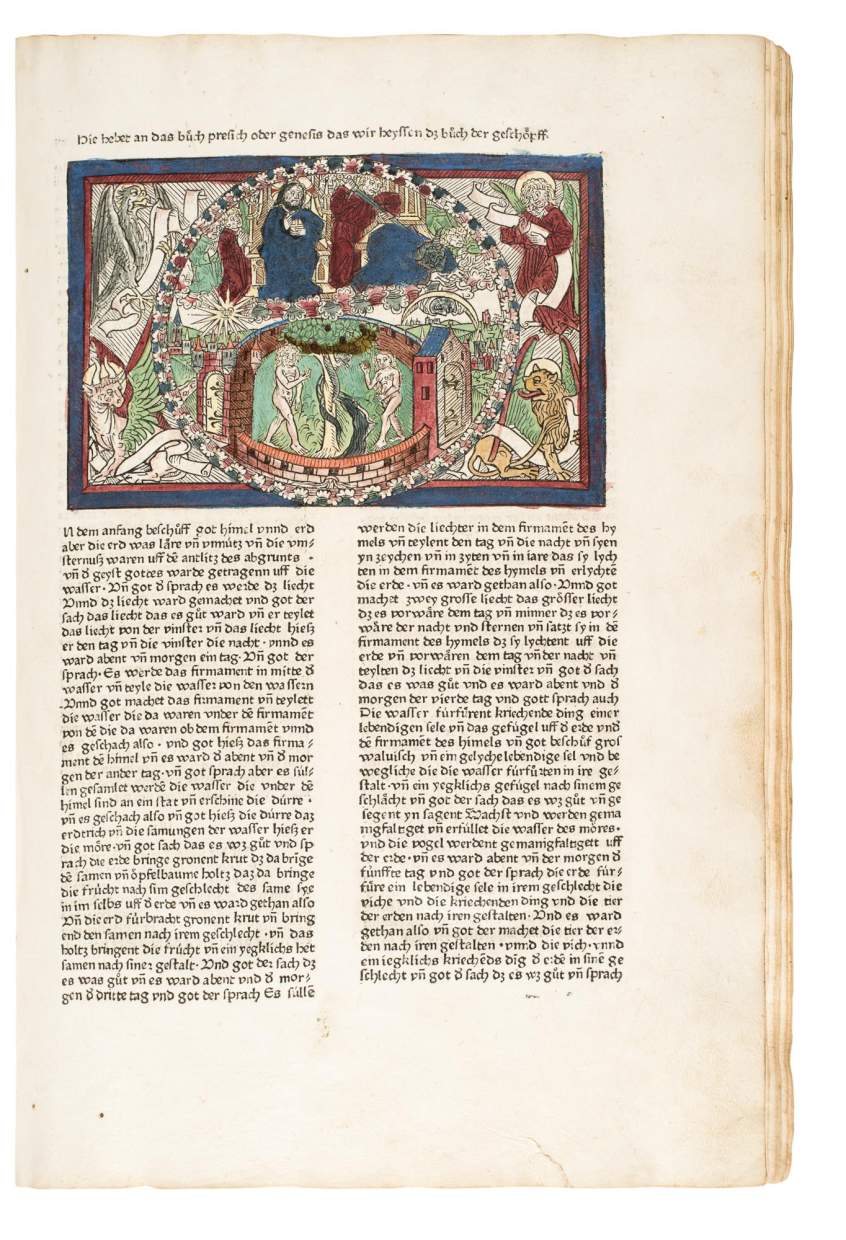 Hie hebet an das bůch presich oder genesis das wir heyssen dʒ bůch der geschöpff.
N dem anfang beschůff got himel vnnd erd
aber die erd was läre vn̄ vnnútʒ vn̄ die vin⸗
sternusʒ waren uff dē antlitʒ des abgrunts ·
vn̄ d̕ geyst gottes warde getragenn uff die
wasser · Vn̄ got d̕ sprach es werde dʒ liecht
Vnnd dʒ liecht ward gemachet vnd got der
sach das liecht das es gůt ward vn̄ er teylet
das liecht von der vinster vn̄ das liecht hiesʒ
er den tag vn̄ die vinster die nacht · vnnd es
ward abent vn̄ morgen ein tag · Vn̄ got der
sprach · Es werde das firmament in mitte d̕
wasser vn̄ teyle die wasser von den wassern
Vnnd got machet das firmament vn̄ teylett
die wasser die da waren vnder dē firmamēt
von dē die da waren ob dem firmamēt vnnd
es geschach also · vnd got hiesʒ das firma⸗
ment dē himel vn̄ es ward d̕ abent vn̄ d̕ mor
gen der ander tag · vn̄ got sprach aber es súl⸗
len gesamlet werdē die wasser die vnder dē
himel sind an ein stat vn̄ erschine die dúrre ·
vn̄ es geschach also vn̄ got hiesʒ die dúrre daʒ
erdtrich vn̄ die samungen der wasser hiesʒ er
die möre · vn̄ got sach das es wʒ gůt vnd sp
rach die erde bringe gronent krut dʒ da brīge
dē samen vn̄ öpfelbaume holtʒ daʒ da bringe
die frúcht nach sim geschlecht des same sye
in im selbs uff d̕ erde vn̄ es ward gethan also
Vn̄ die erd fúrbracht gronent krut vn̄ bring
end den samen nach irem geschlecht · vn̄ das
holtʒ bringent die frúcht vn̄ ein yegklichs het
samen nach siner gestalt · Vnd got der sach dʒ
es was gůt vn̄ es ward abent vnd d̕ mor⸗
gen d̕ dritte tag vnd got der sprach Es súllē
werden die liechter in dem firmamēt des hy
mels vn̄ teylent den tag vn̄ die nacht vn̄ syen
yn ʒeychen vn̄ in ʒyten vn̄ in iare das sy lych
ten in dem firmamēt des hymels vn̄ erlychtē
die erde · vn̄ es ward gethan also · Vnnd got
machet ʒwey grosse liecht das grösser liecht
dʒ es vorwäre dem tag vn̄ minner dʒ es vor⸗
wäre der nacht vnd sternen vn̄ satʒt sy in dē
firmament des hymels dʒ sy lychtent uff die
erde vn̄ vorwären dem tag vn̄ der nacht vn̄
teylten dʒ liecht vn̄ die vinster vn̄ got d̕ sach
das es was gůt vnd es ward abent vnd d̕
morgen der vierde tag vnd gott sprach auch
Die wasser fúrfúrent kriechende ding einer
lebendigen sele vn̄ das gefúgel uff d̕ erde vnd̕
dē firmamēt des himels vn̄ got beschůf gros
waluisch vn̄ ein gelyche lebendige sel vnd be
wegliche die die wasser fúrfúrten in ire ge⸗
stalt · vn̄ ein yegklichs gefúgel nach sinem ge
schlächt vn̄ got der sach das es wʒ gůt vn̄ ge
segent yn sagent Wachst vnd werden gema
nigfaltiget vn̄ erfúllet die wasser des möres ·
vnd die vogel werdent gemanigfaltigett uff
der erde · vn̄ es ward abent vn̄ der morgen d̕
fúnffte tag vnd got der sprach die erde fúr⸗
fúre ein lebendige sele in irem geschlecht die
viche vnd die kriechenden ding vnd die tier
der erden nach iren gestalten · Vnd es ward
gethan also vn̄ got der machet die tier der er⸗
den nach iren gestalten · vnnd die vich · vnnd
ein iegklichs kriechēds dīg d̕ erdē in sinē ge
schlecht vn̄ got d̕ sach dʒ es wʒ gůt vn̄ sprach